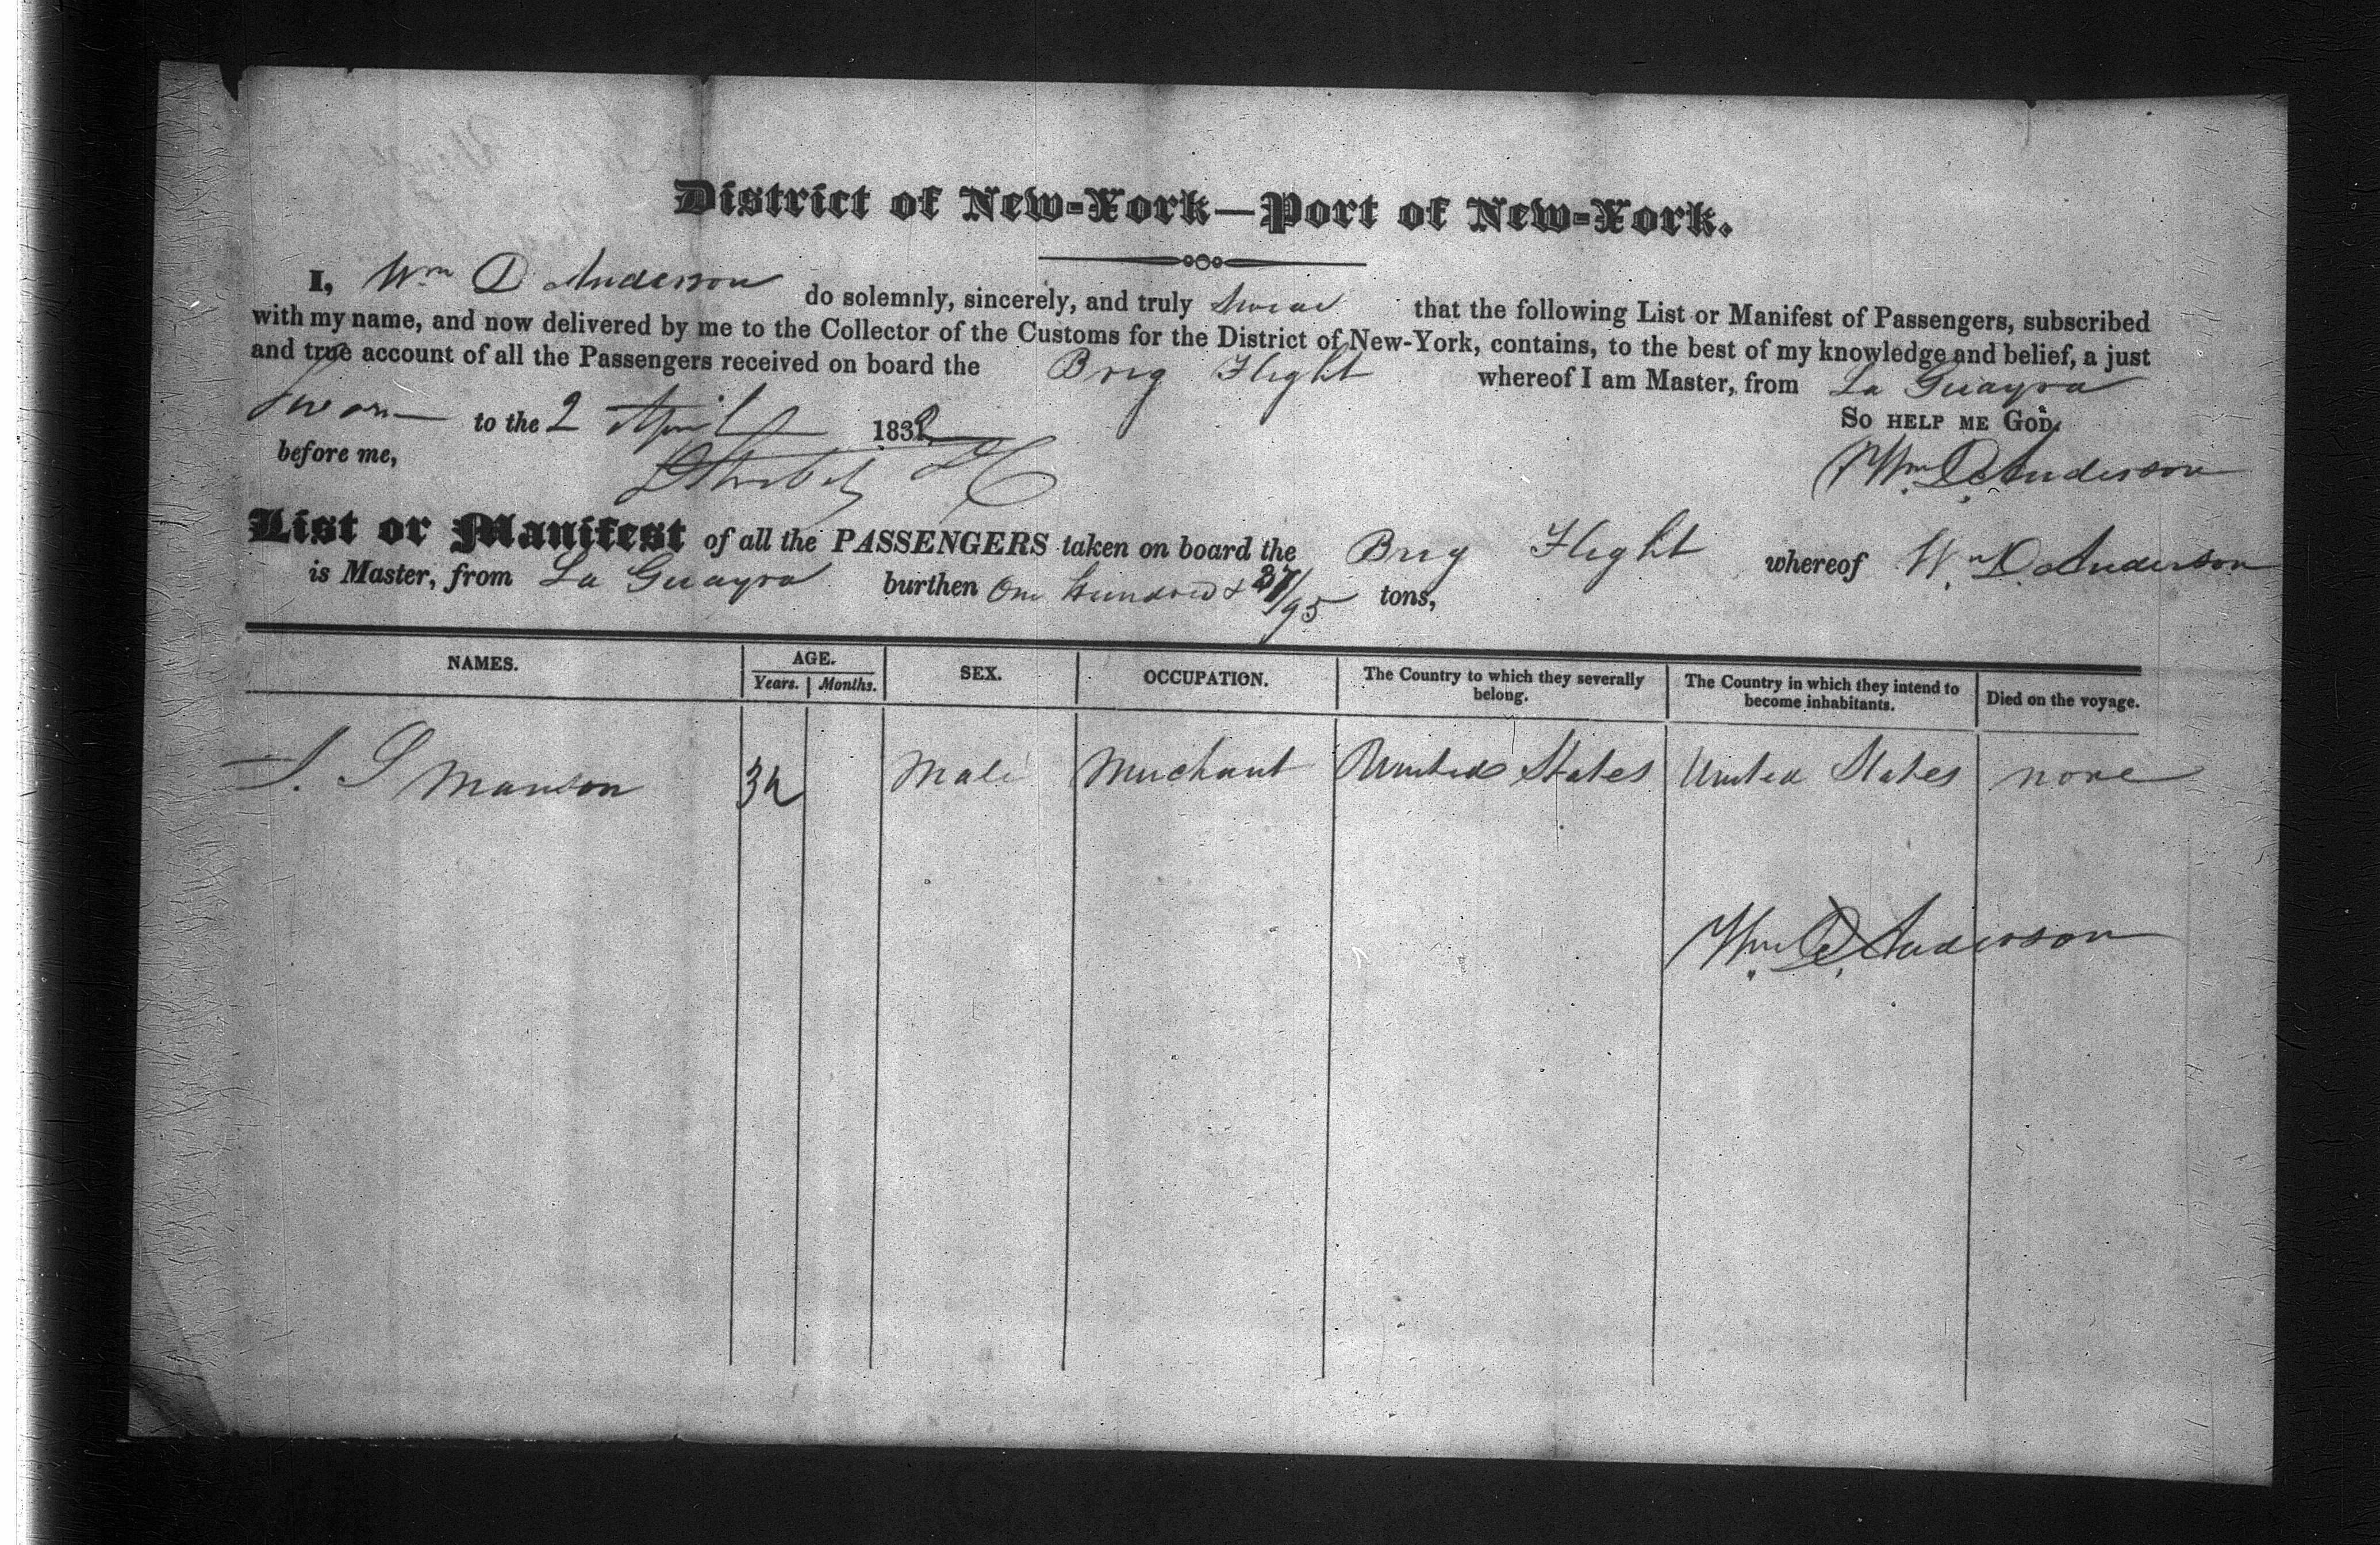 District of New-York—Port of New-York.
I, Wm D Anderson do solemnly, sincerely, and truly swear that the following List or Manifest of Passengers, subscribed
with my name, and now delivered by me to the Collector of the Customs for the District of New-York, contains, to the best of my knowledge and belief, a just
and true account of all the Passengers received on board the Brig Flight whereof I am Master, from La Guayra
Sworn to the 2 April 1832 So help me God.
before me, Wm D Anderson
List or Manifest of all the PASSENGERS taken on board the Brig Flight whereof Wm D. Anderson
is Master, from La Guayra burthen One Hundred & 37/95 tons,
NAMES. AGE. SEX. OCCUPATION. The Country to which they severally belong. The Country in which they intend to become inhabitants. Died on the voyage.
Years. Months.
Manson Male Merchant United States United States none
Wm D. Anderson